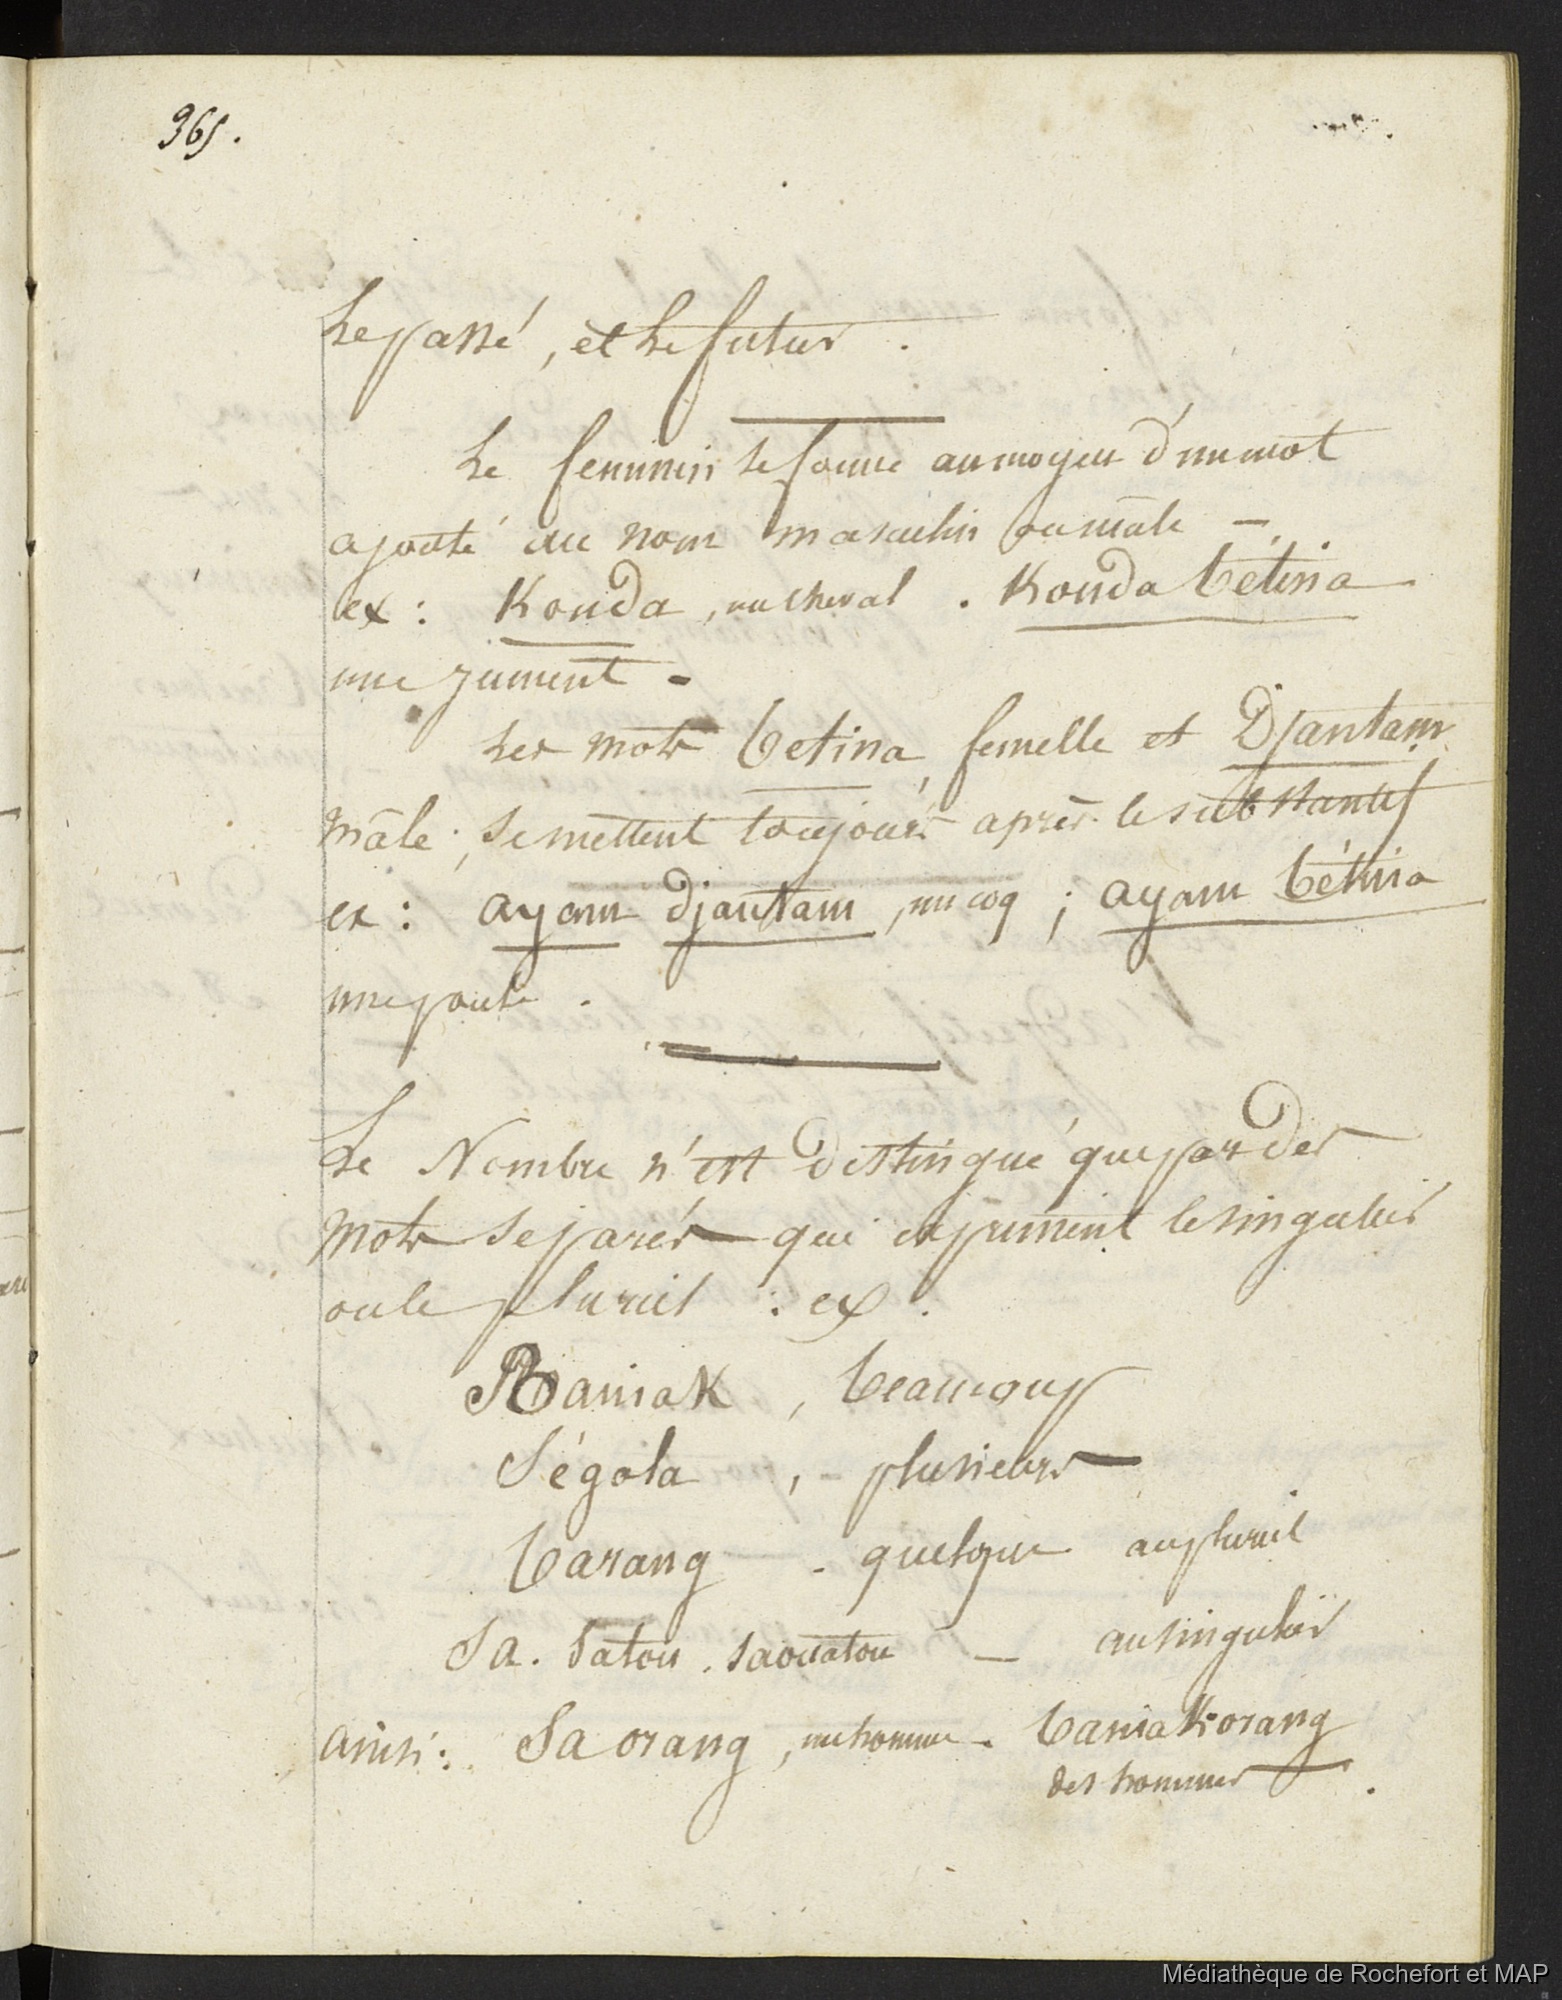 365.
Le passé, et Le futur.
Le feminin se forme au moyen d'un mot
ajouté au nom masculin ou mâle —.
ex : Kouda, un cheval. Kouda bétina
une jument.
Les mots betina, femelle et Djantam
mâle, se mettent toujours après le substantif
ex : ayam djantam, un coq ; ayam bétina
une poule.
Le Nombre n'est distingué que par des
mots separés qui expriment le singulier
ou le pluriel : ex :
Baniak, beaucoup
Ségola, plusieurs
barang - quelque au pluriel
Sa. Satou. saouatou — au singulier
ainsi : Sa orang, un homme - baniak orang
des hommes.
Médiathèque de Rochefort et MAP